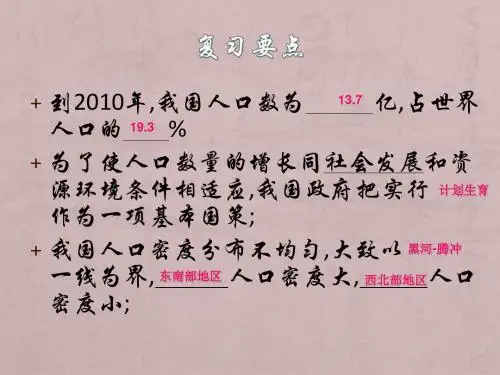 复习要点
到2010年,我国人口数为 13.7 亿,占世界
人口的 19.3 %
为了使人口数量的增长同社会发展和资
源环境条件相适应,我国政府把实行 计划生育
作为一项基本国策;
我国人口密度分布不均匀,大致以 黑河-腾冲
一线为界, 东南部地区 人口密度大, 西北部地区 人口
密度小;